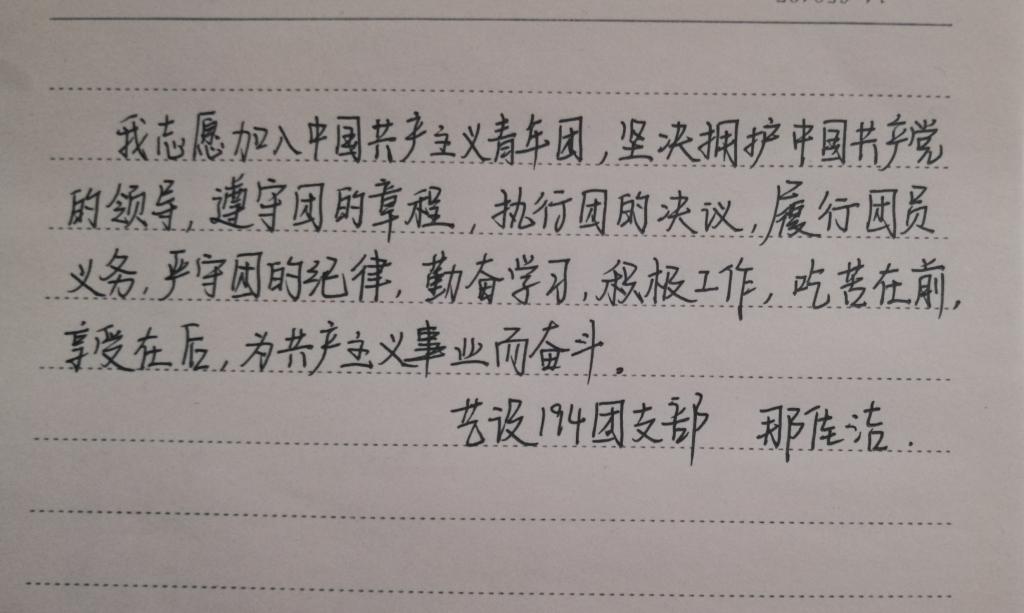 我志愿加入中国共产主义青年团,坚决拥护中国共产党
的领导,遵守团的章程,执行团的决议,履行团员
义务,严守团的纪律,勤奋学习,积极工作,吃苦在前,
享受在后,为共产主义事业而奋斗。
艺设194团支部 那佳洁.